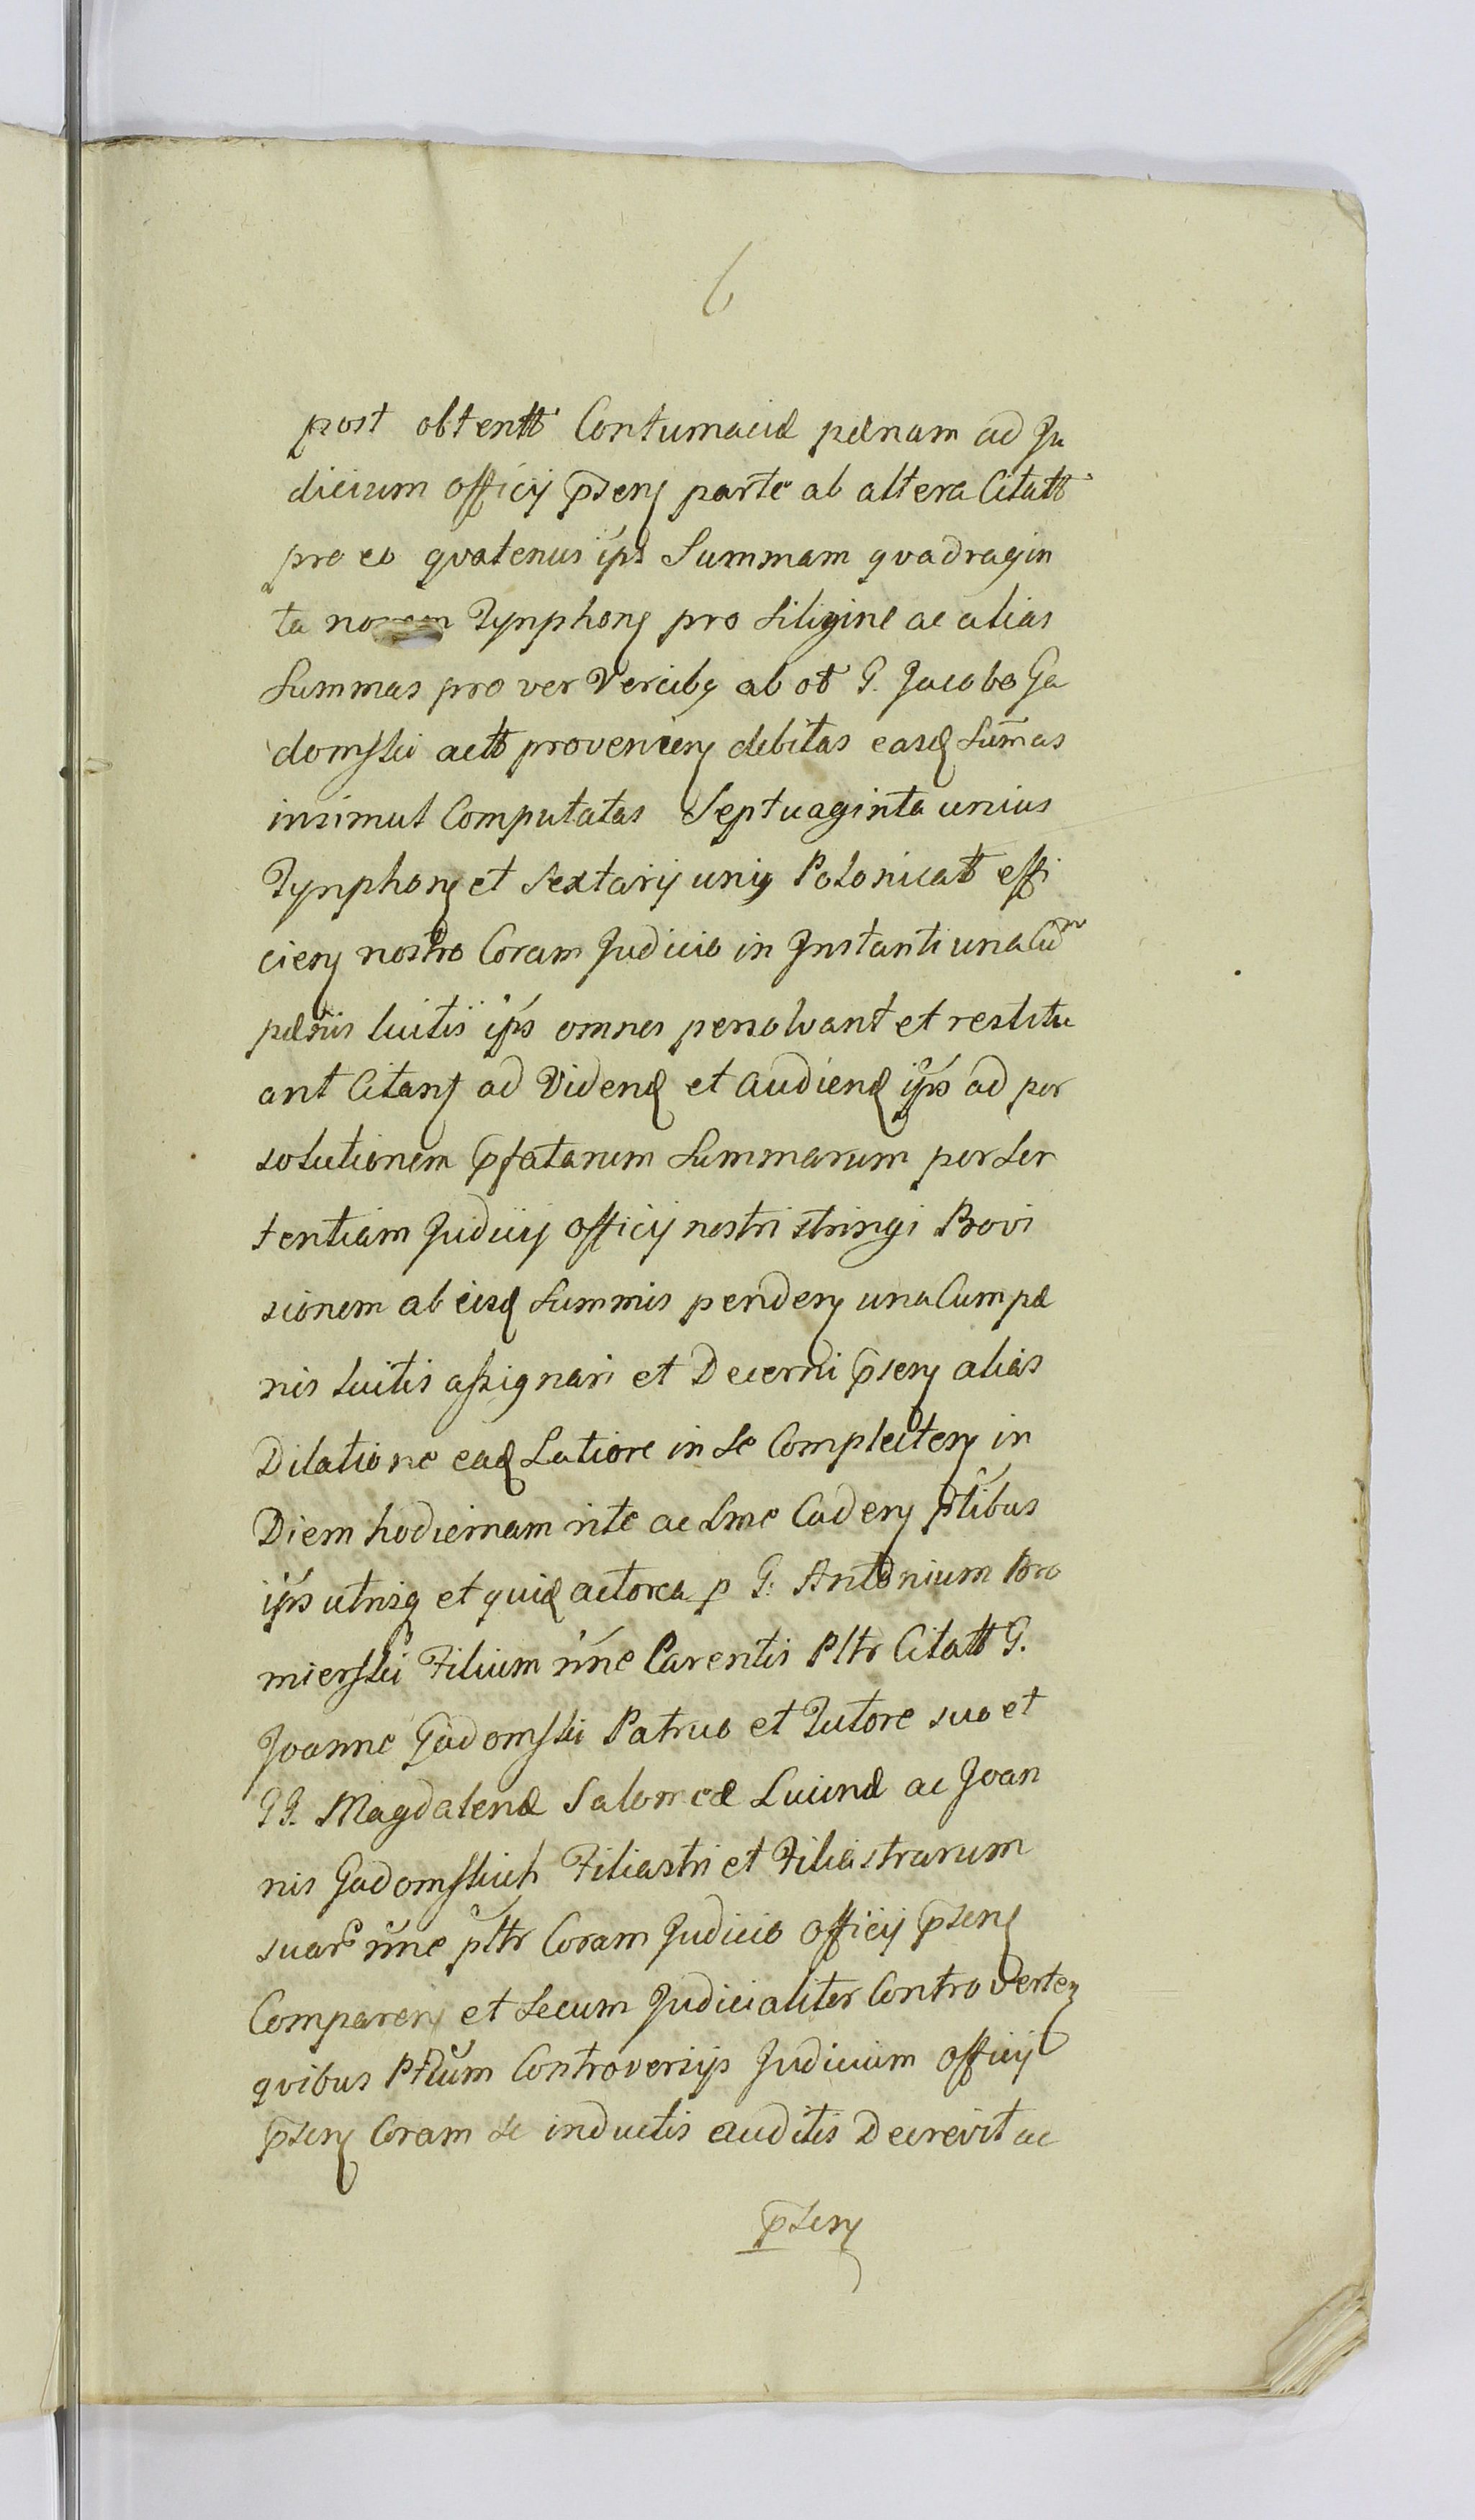 6
post obtentt Contumaciæ pænam ad Ju
dicium officij p̄sens parte ab altera Citatt
pro eo qvatenus ipsi Summam qvadragin
ta novem Tynphons pro siligine ac alias
Summas pro ver Vercibg ab ot G. Jacobo Ga
domski actt proveniens debitas easq Sum̄as
insimul Computatas Septuaginta unius
Tynphons et Sextarij unig Polonicatt effi
ciens nostro Coram Judicio in Instanti una Cum
pænis luitis ips omnes persolvant et restitu
ant Citans ad Vidend et audiend ips ad per
solutionem p̄fatarum Summarum per Sen
tentiam Judicij officij nostri stringi Provi
sionem ab eisd Summis pendens una Cum pæ
nis luitis assignari et Decerni p̄sens alias
Dilatione ead Latiore in se Complectens in
Diem hodiernam rite ac Lme Cadens ptibus
ips utrisq et quid actorea p G. Antonium Bro
mierski Filium nne Parentis Pltr Citatt G.
Joanne Gadomski Patruo et Tutore suo et
GG. Magdalenæ Salomeæ Lucinæ ac Joan
nis Gadomskich Filiastri et Filiastrarum
suar nne pltr Coram Judicio officij p̄sens
Comparens et secum Judicialiter Controverten
qvibus Ptium Controversijs Judicium officij
p̄sens Coram se inductis auditis Decrevit ac
p̄sens